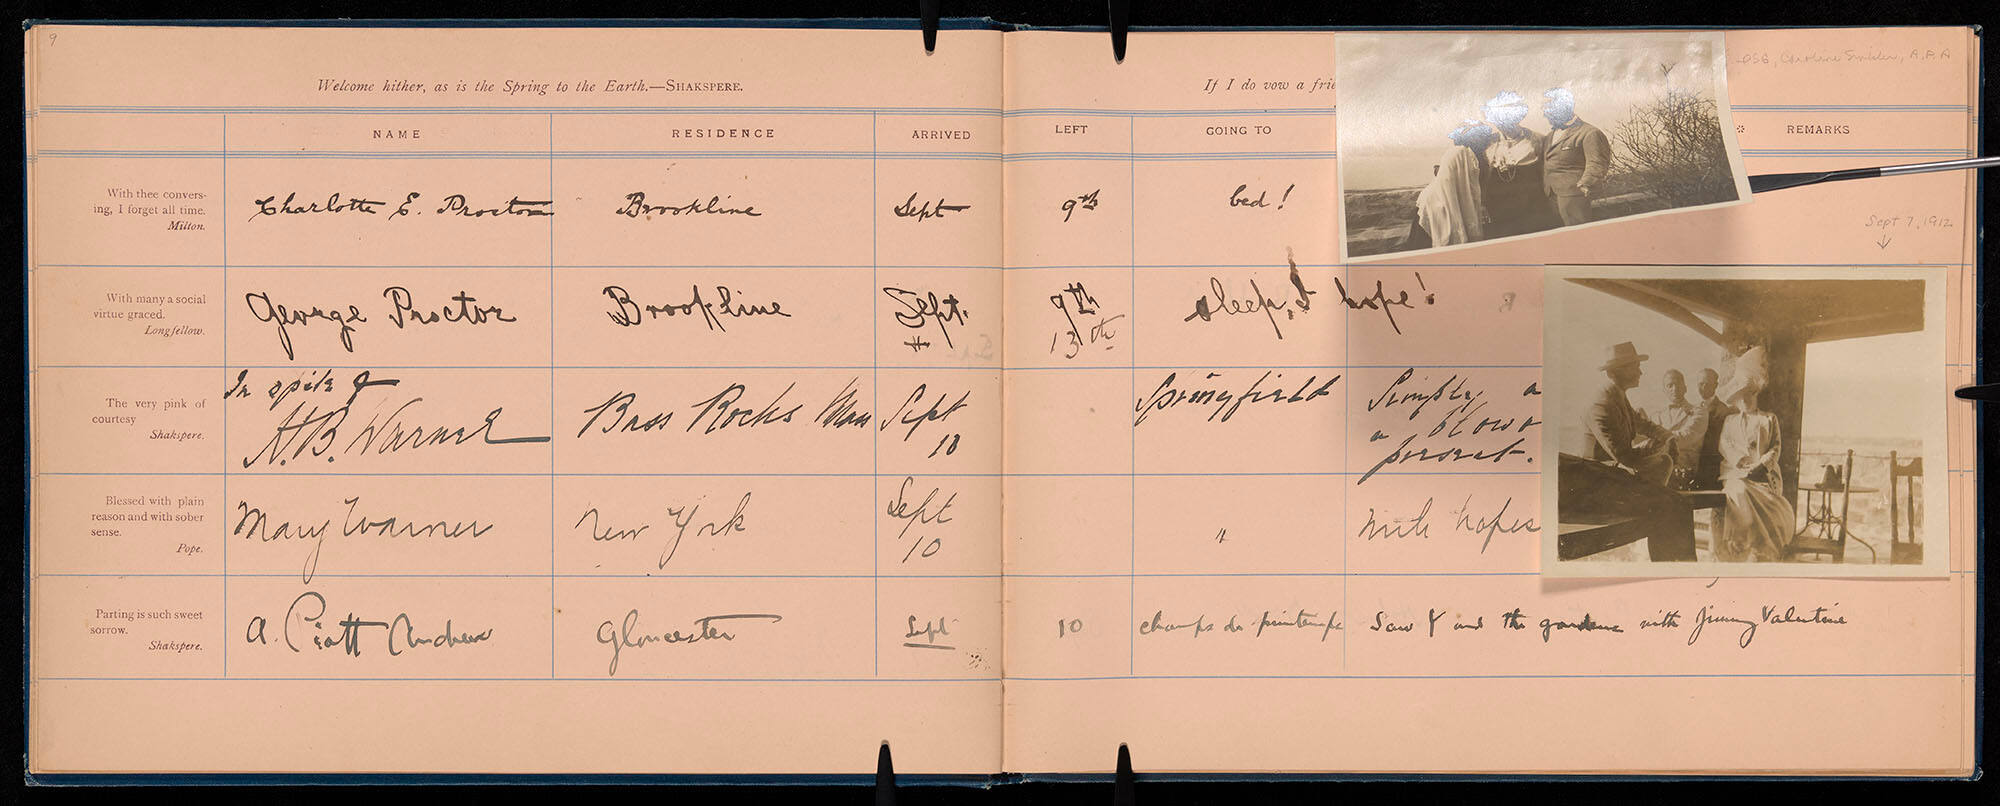 9
Welcome hither, as is the Spring to the Earth.—SHAKSPERE.
If I do vow a frie
Caroline Sinkler, A.P.A
NAME RESIDENCE ARRIVED LEFT GOING TO REMARKS
With thee convers-
ing, I forget all time.
Milton.
Charlotte E. Proctor Brookline Sept 9th bed!
Sept 7, 1912
With many a social
virtue graced.
Longfellow.
George Proctor Brookline Sept. 9th sleep, I hope!
13th
The very pink of
courtesy
Shakspere.
In spite of
H.B. Warner Bass Rocks Mass Sept 10 Springfield Simply a
a blow
persnt.
Blessed with plain
reason and with sober
sense.
Pope.
Mary Warner New York Sept 10 " with hopes
Parting is such sweet
sorrow.
Shakspere.
A. Piatt Andrew Gloucester Sept 10 champs du printemps Saw Y and the gardens with Jimmy Valentine